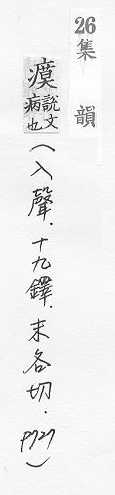 26
集韻
瘼說文病也(入聲.十九鐸.末各切.P727)